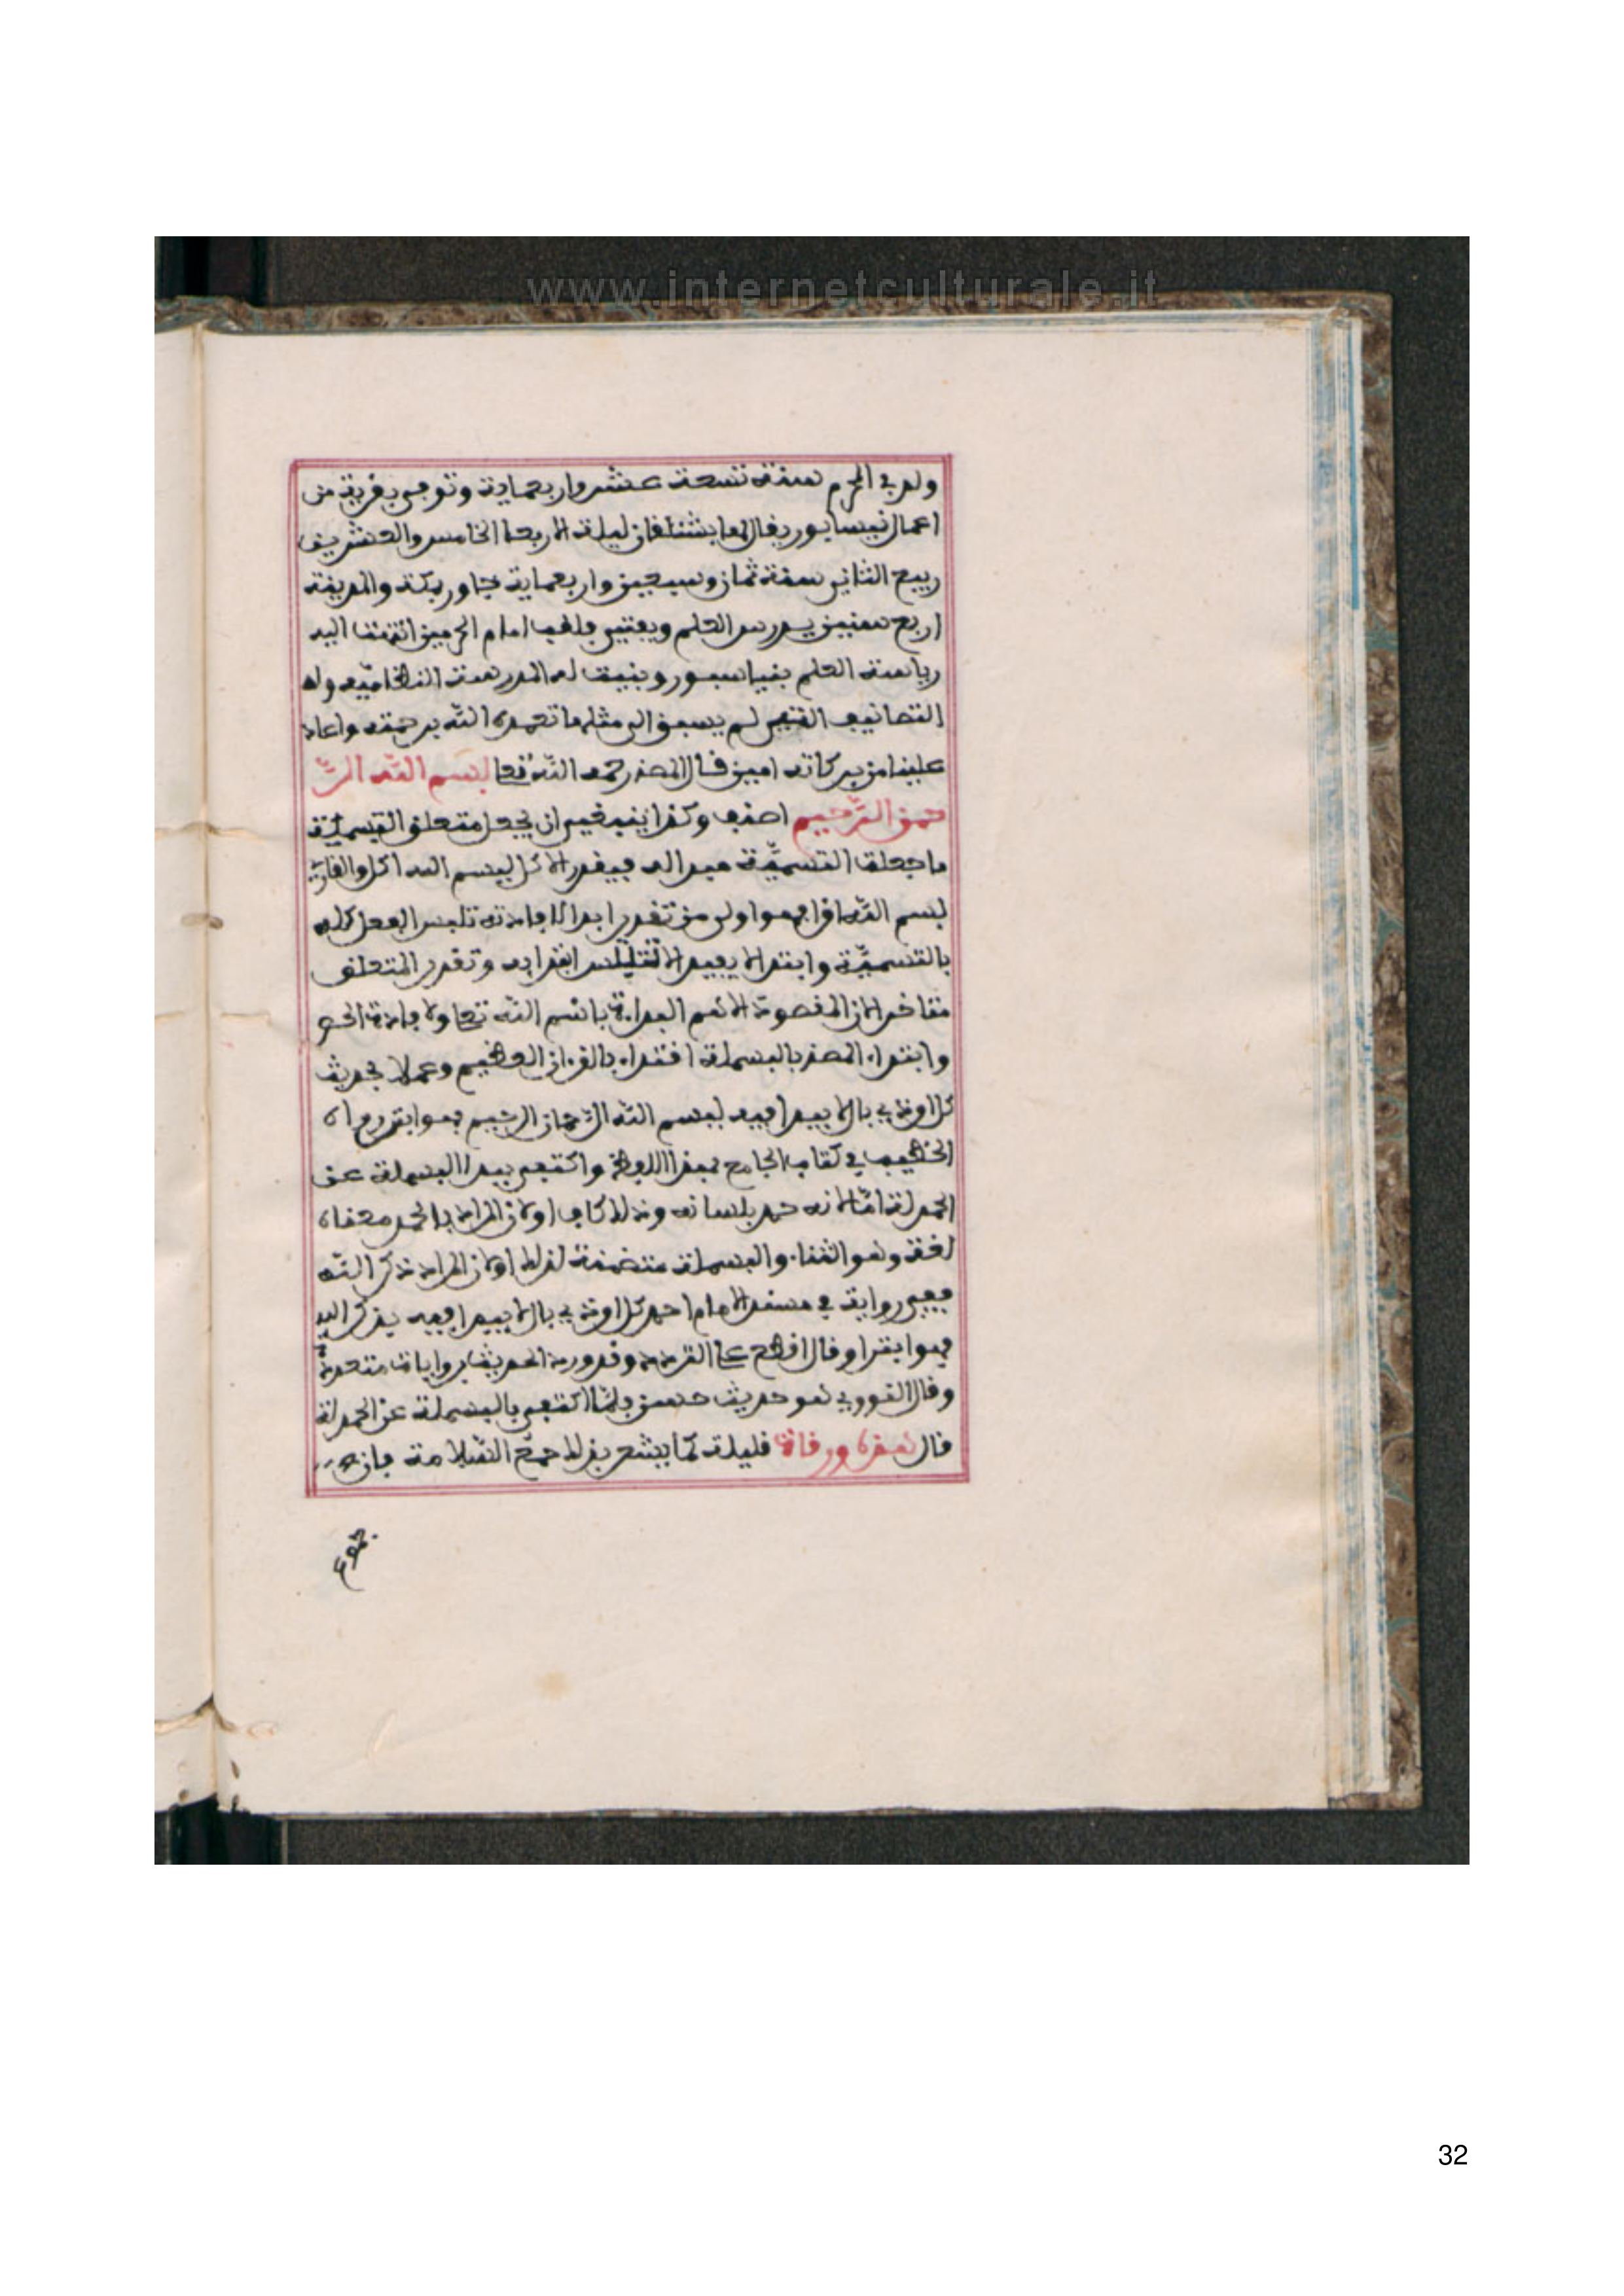 www.internetculturale.it
ولد في المحرم سنة تسعة عشر واربعماية وتوفي بقرية من
اعمال نيسابور يقال لها بشتغال ليلة الاربعا الخامس والعشرين
ربيع الثاني سنة ثمان وسبعين واربعماية جاور بمكة والمدينة
اربع سنين يدرس العلم ويفتي فلقب امام الحرمين انتهت اليه
رياسة العلم بنياسبور وبنيت له المدرسة النظاميه وله
التصانيف التي لم يسبق الى مثلها تغمده الله برحمته واعاد
علينا من بركاته امين قال المصنف رحمه الله تعا بسم الله الر
حمن الرحيم اصنف وكذا ينبغي ان يجعل متعلق التسمية
ما جعلت التسمية مبدا له فيقدر الاكل بسم الله اكل والقارئ
بسم الله اقرا فهو اولى من تقدير ابدا لافادته تلبس الفعل كله
بالتسمية وابتدا لا يفيد الا تلبس ابتدايه وتقدير المتعلق
متاخرا لان المقصود الاهم البداءة باسم الله تعا ولافادة الحصر
وابتداء المصنف بالبسملة اقتداء بالقرءان العظيم وعملا بحديث
كل امر ذي بال لا يبدا فيه ببسم الله الرحمان الرحيم فهو ابتر رواه
الخطيب في كتاب الجامع بهذا اللفظ واكتفى ببدا البسملة عن
الحمدلة اما لانه حمد بلسانه وذلك كاف او لان المراد بالحمد معناه
لغة وهو الثناء والبسملة متضمنة لذلك او لان المراد ذكر الله
ففي رواية في مسند الامام احمد كل امر ذي بال لا يبدا فيه بذكر الله
فهو ابتر او قال اقطع على التردد وقد ورد الحديث بروايات متعددة
وقال النووي هو حديث حسن فلما اكتفى بالبسملة عن الحمدلة
قال هذه ورقات قليلة كما يشعر بذلك جمع السلامة فان
جموع
32